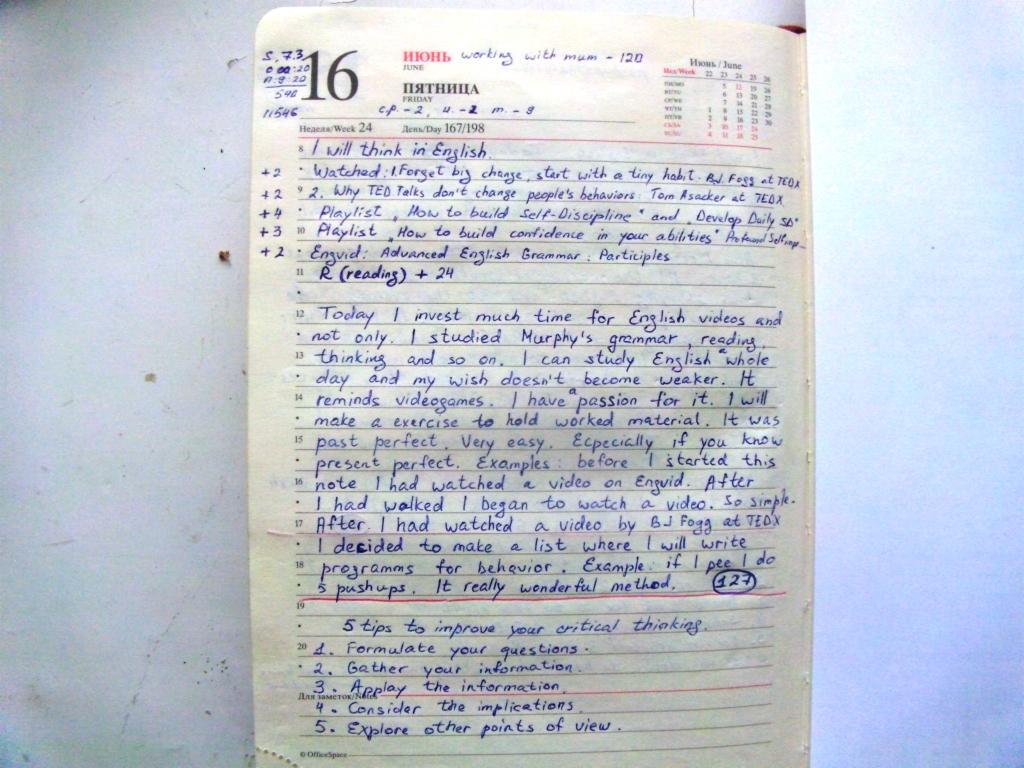 S. 7.3
0 00:20
A: 9:20
540
11546
16
ИЮНЬ working with mum - 120
JUNE
ПЯТНИЦА
FRIDAY
c.p. - 2, u. - 2 m. - 9
Неделя/Week 24 День/Day 167/198
Июнь / June
Нед/Week 22 23 24 25 26
ПН/MO 5 12 19 26
ВТ/TU 6 13 20 27
СР/WE 7 14 21 28
ЧТ/TH 1 8 15 22 29
ПТ/FR 2 9 16 23 30
СБ/SA 3 10 17 24
ВС/SU 4 11 18 25
8 I will think in English.
+2 Watched: 1. Forget big change, start with a tiny habit. BJ Fogg at TEDX
+2 9 2. Why TED Talks don't change people's behaviors: Tom Asacker at TEDX
+4 Playlist „How to build Self-Discipline" and „Develop Daily SD"
+3 10 Playlist „How to build confidence in your abilities"
+2 Engvid: Advanced English Grammar: Participles
11 R (reading) + 24
12 Today I invest much time for English videos and
not only. I studied Murphy's grammar, reading,
13 thinking and so on. I can study English a whole
day and my wish doesn't become weaker. It
14 reminds videogames. I have a passion for it. I will
make a exercise to hold worked material. It was
15 past perfect. Very easy. Ecpecially if you know
present perfect. Examples: before I started this
16 note I had watched a video on Engvid. After
I had walked I began to watch a video. So simple.
17 After I had watched a video by BJ Fogg at TEDX
I decided to make a list where I will write
18 programms for behavior. Example: if I pee I do
5 pushups. It really wonderful method. 127
19
5 tips to improve your critical thinking.
20 1. Formulate your questions.
2. Gather your information.
3. Applay the information.
Для заметок/Notes
4. Consider the implications.
5. Explore other points of view.
© OfficeSpace